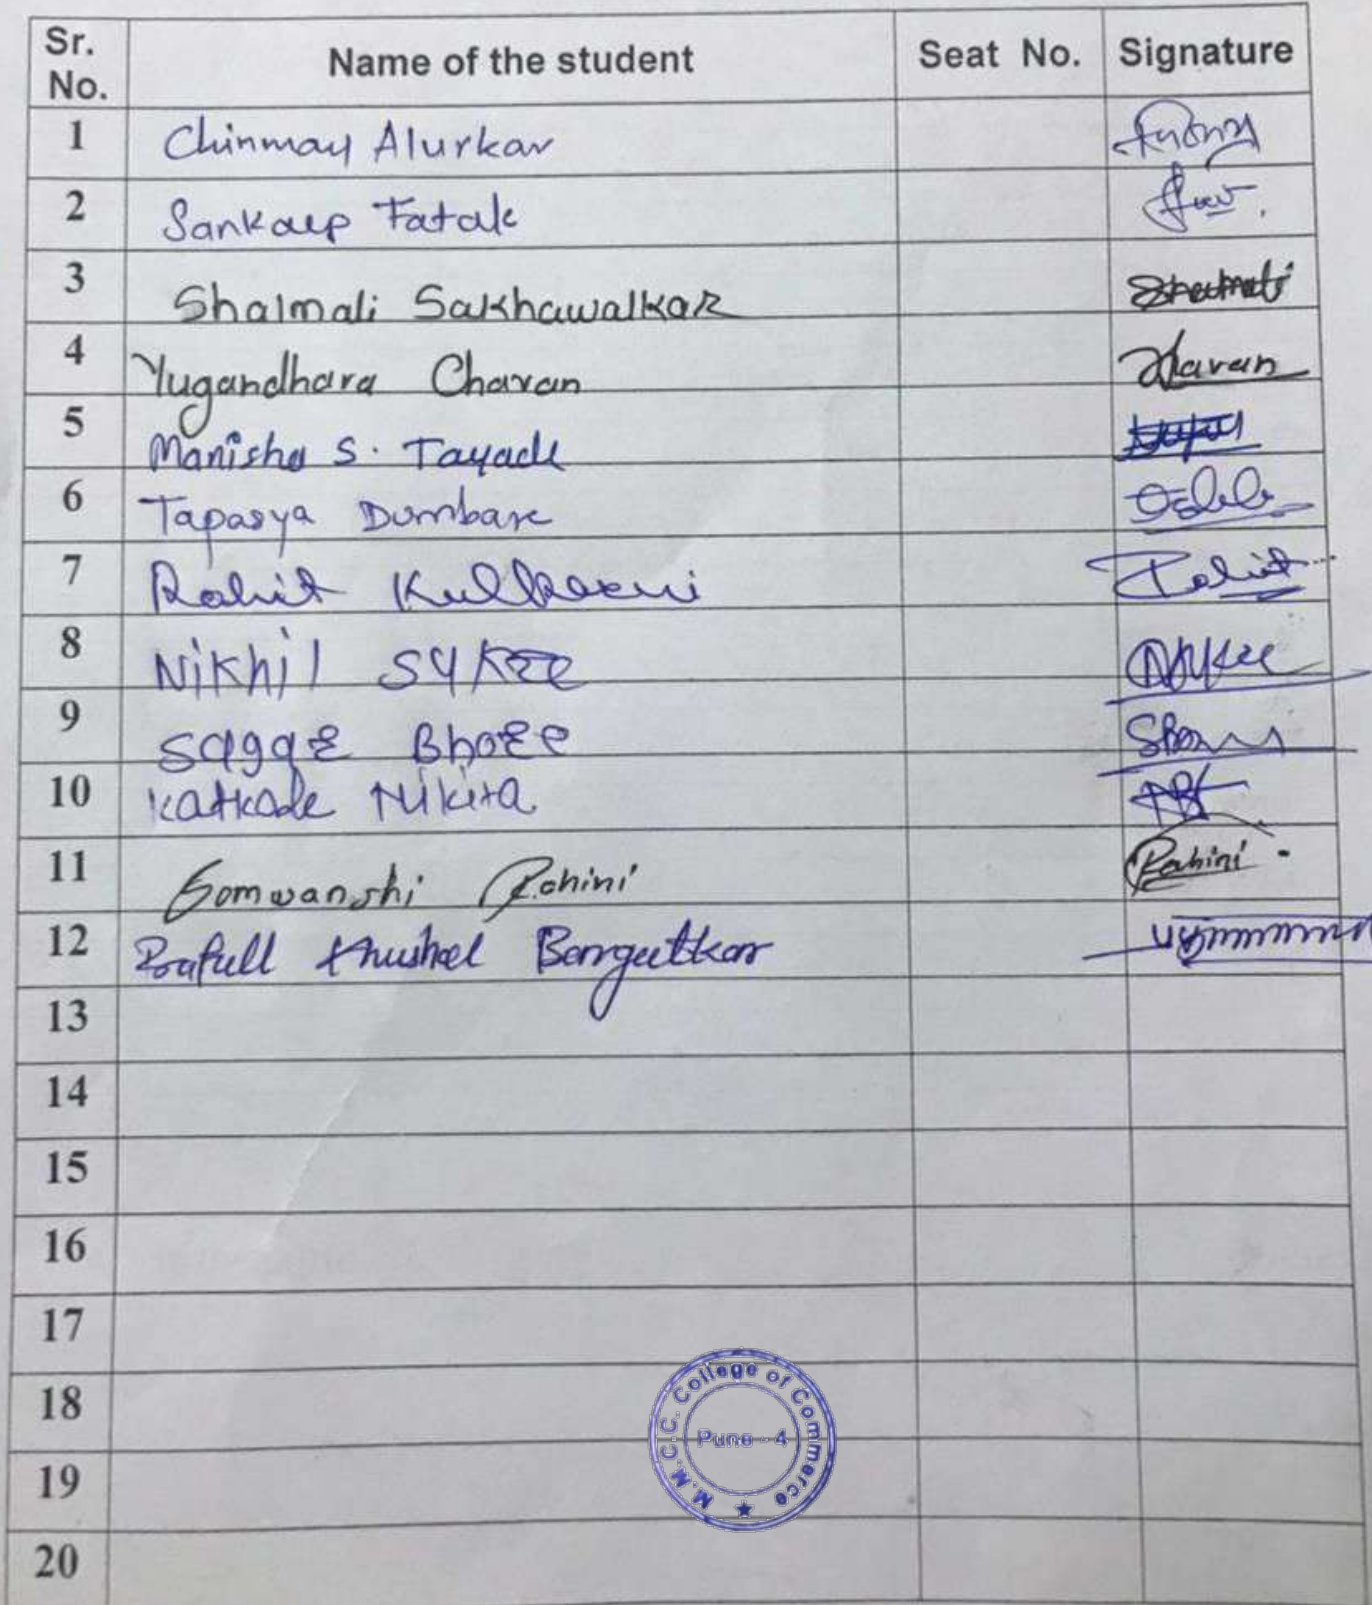 Sr. No. Name of the student Seat No. Signature
1 Chinmay Alurkar
2 Sankalp Fatale
3 Shalmali Sakhawalkar Shalmali
4 Yugandhara Chavan Chavan
5 Manisha S. Tayade
6 Tapasya Dumbare
7 Rohit Kulkarni Rohit
8 Nikhil
9 Sagar Bhore
10 Katkade Nikita
11 Somwanshi Rohini Rohini
12 Prafull Khushal
13
14
15
16
17
18
19
20
M.M.C.C. College of Commerce
Pune - 4